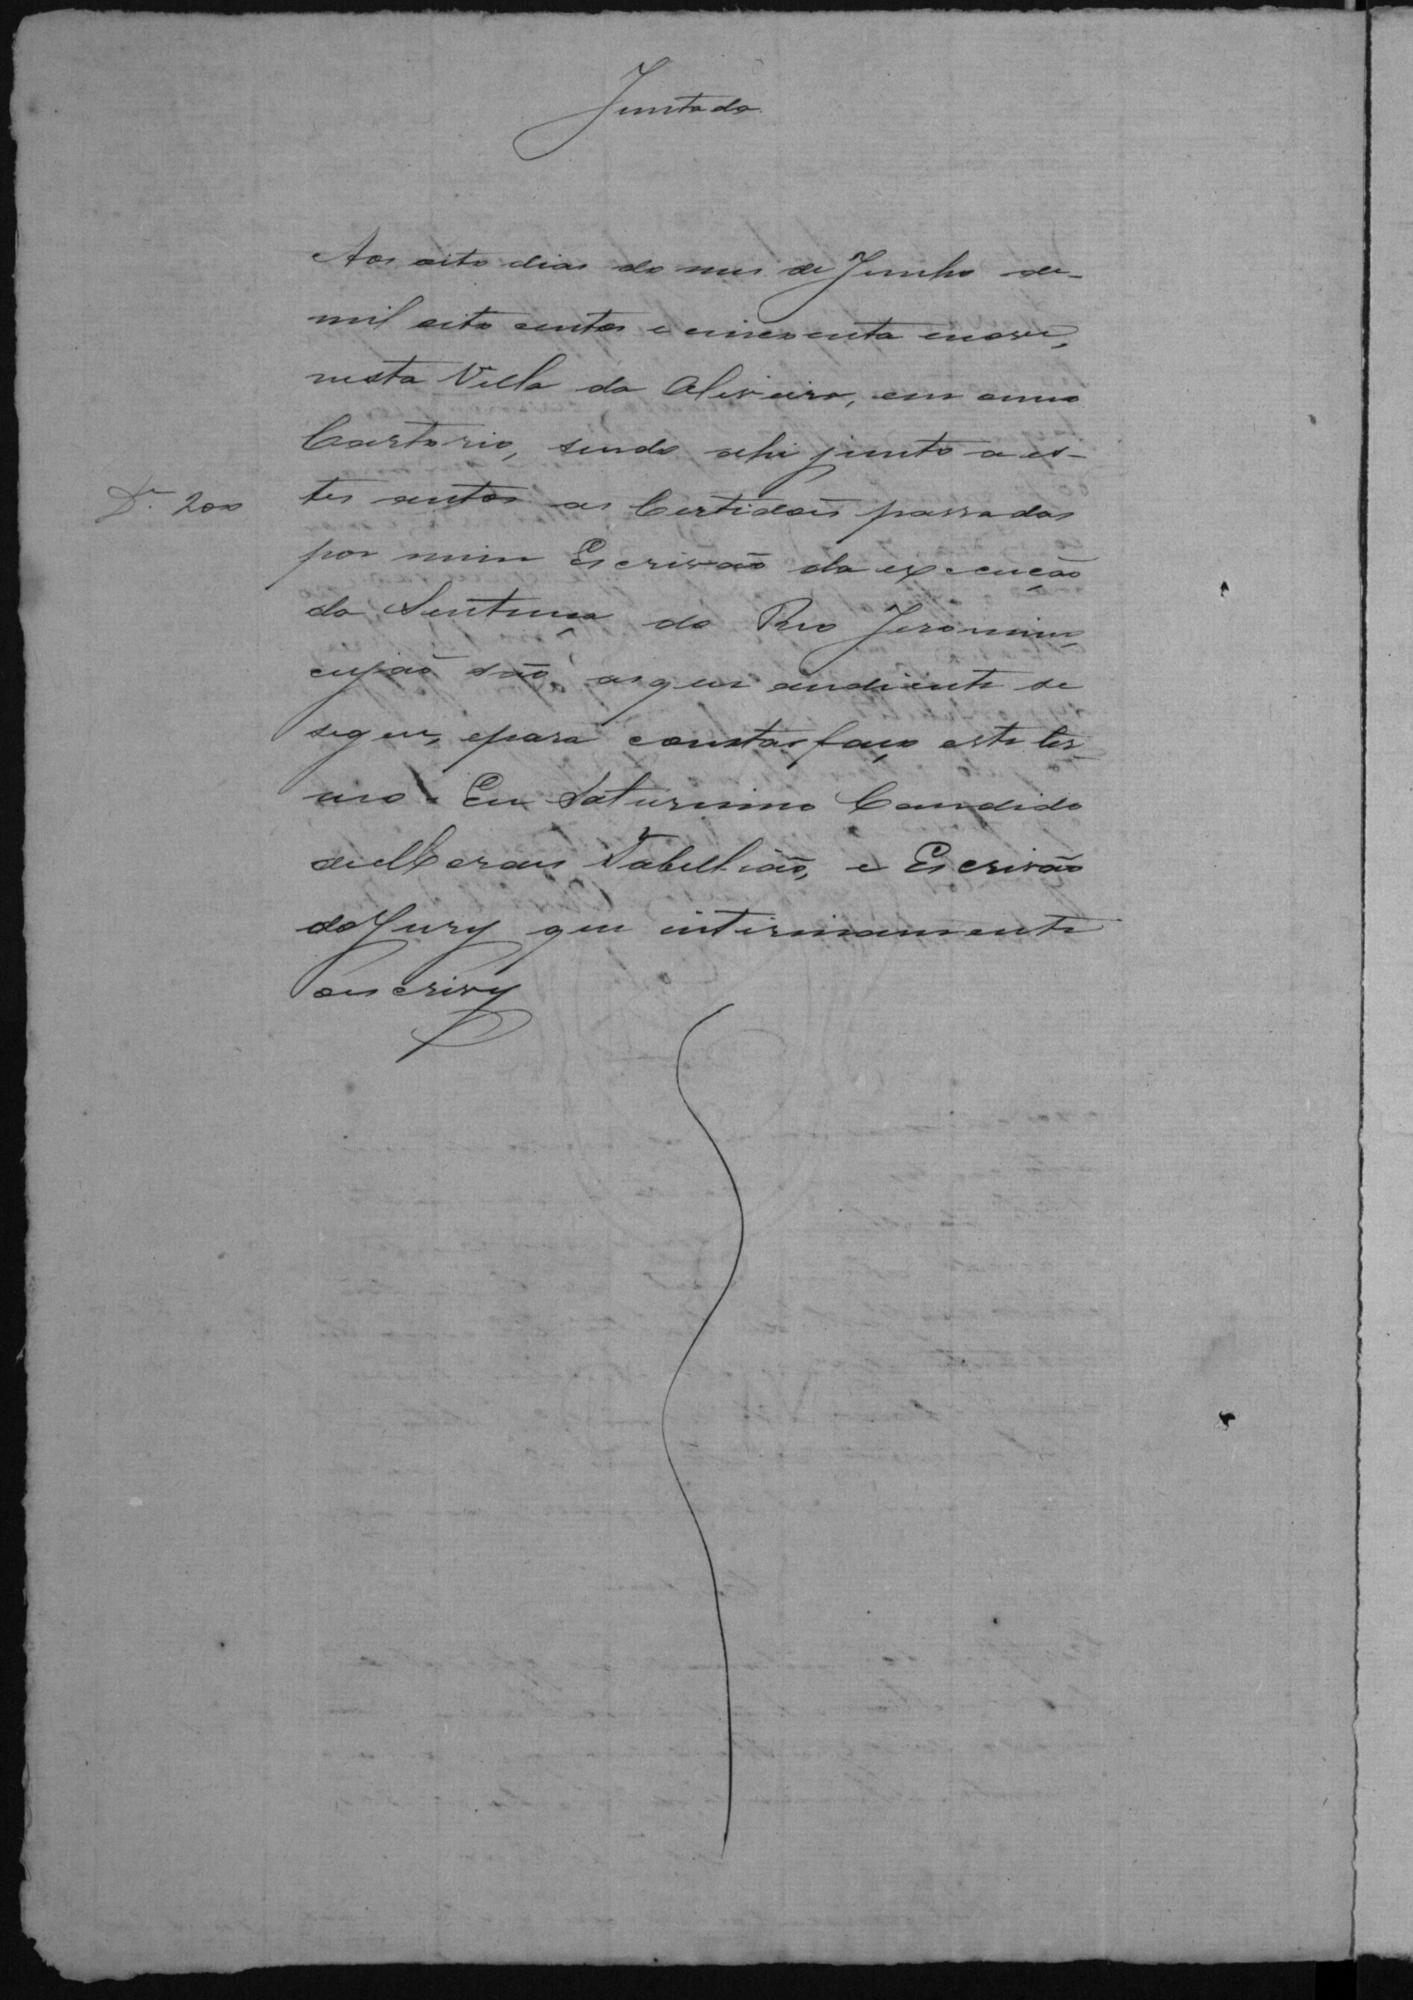 Juntada
Aos oito dias do mes de Junho de
mil oito centos e cincoenta enove,
nesta Villa da Oliveira, em meu
Cartorio, sendo ahi junto a es-
D. 200 tes autos as Certidois passadas
por mim Escrivão da execução
da Sentença do Reo Jeronimo,
cujas são as que endiante se
segue, epara constar faço este ter-
mo. Eu Saturnino Candido
de Tabellião, e Escrivão
do Jury que interinamente
escrivy